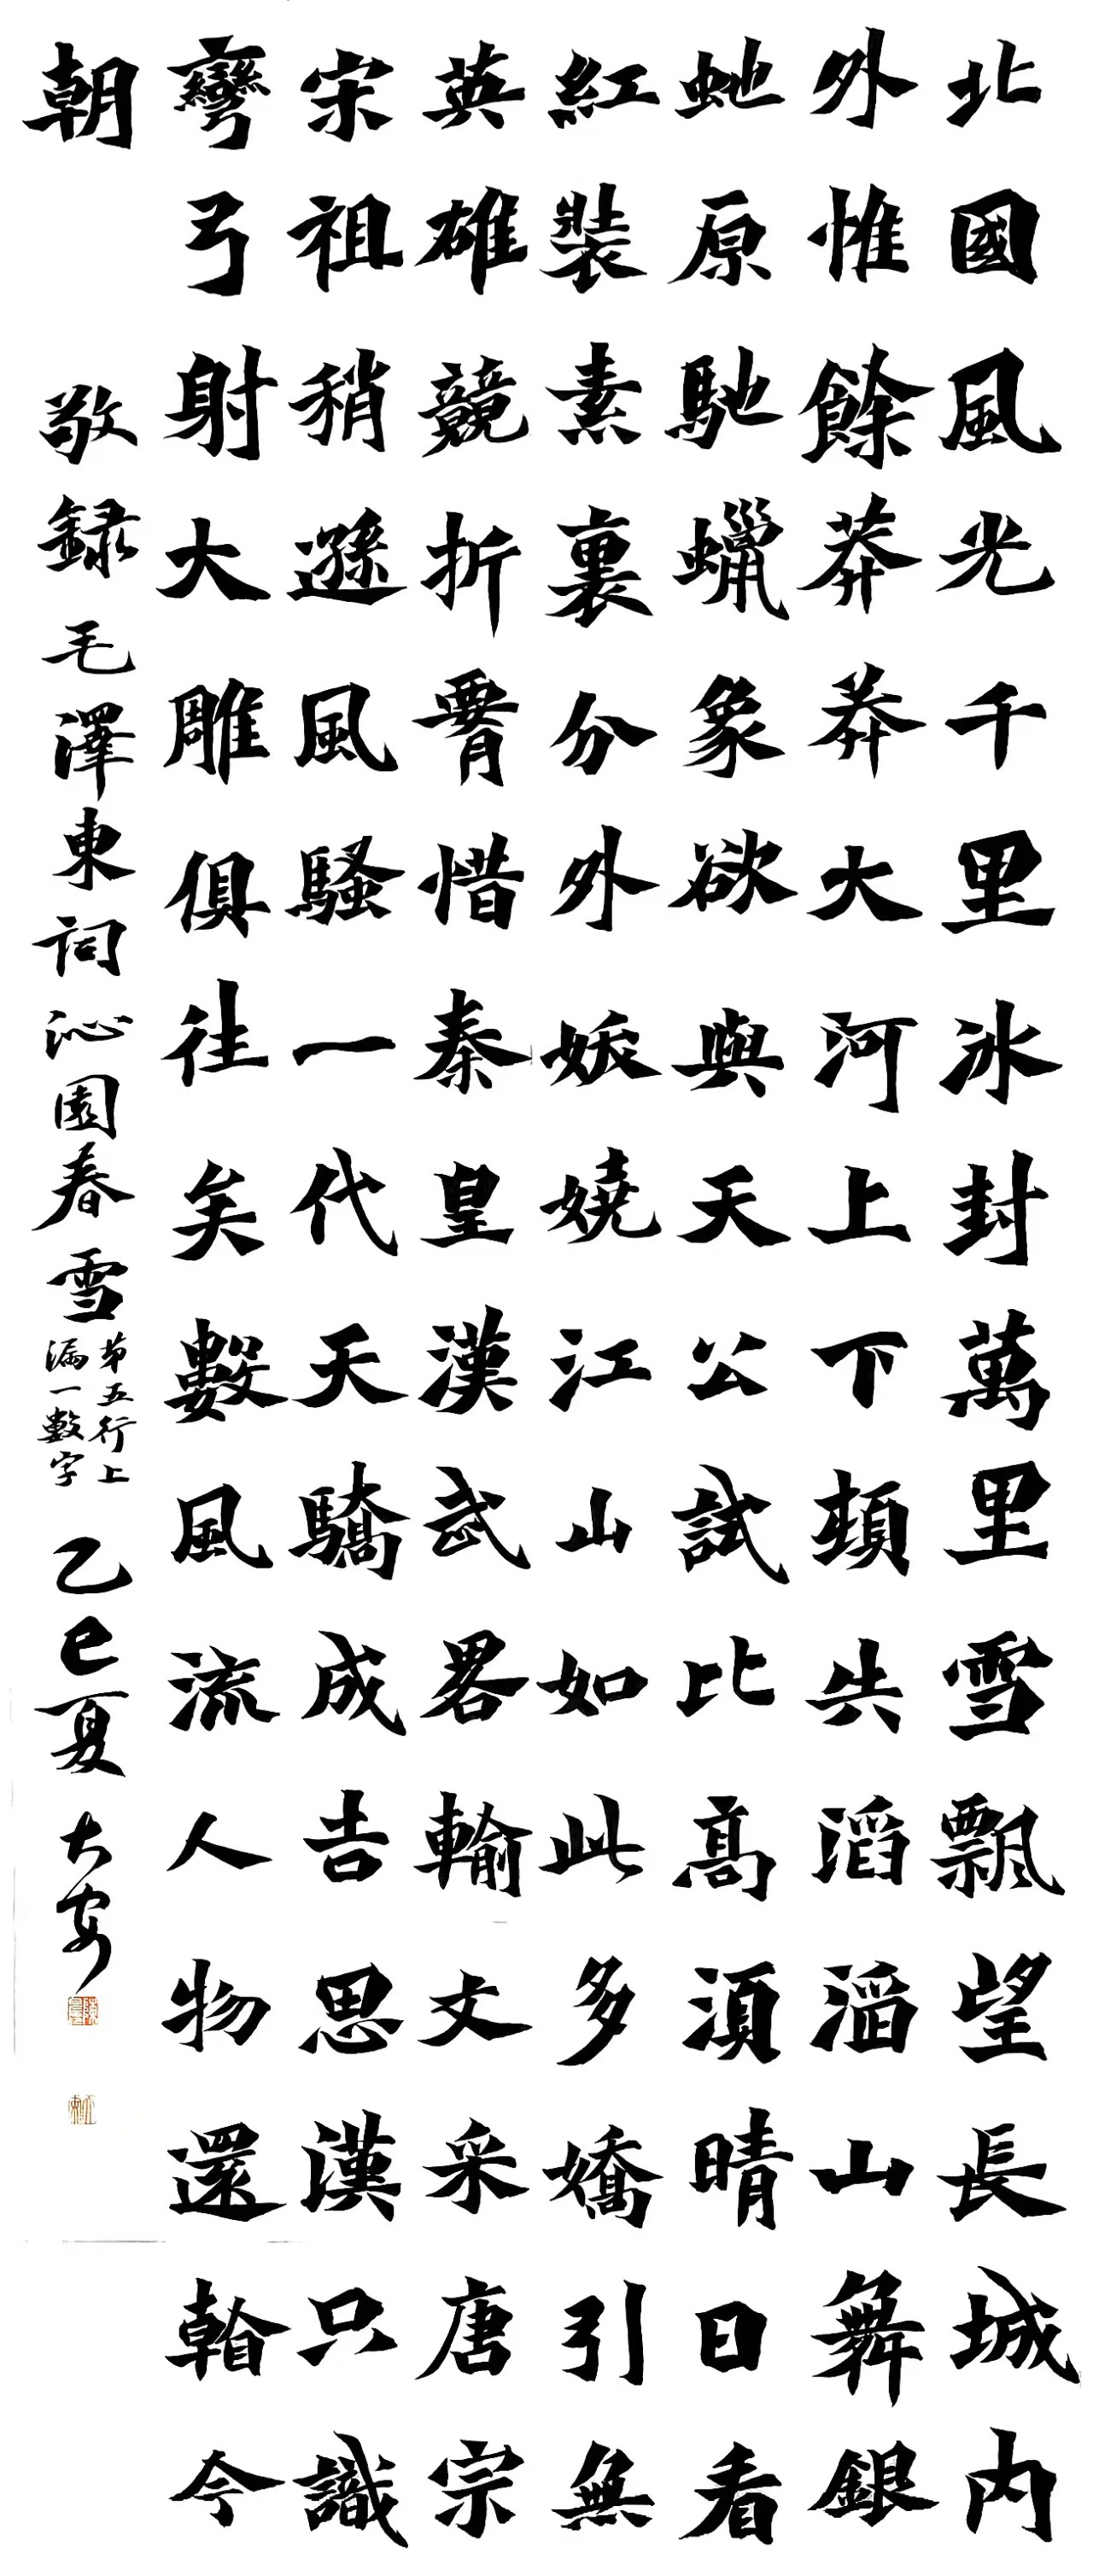 北國風光千里冰封萬里雪飄望長城內
外惟餘莽莽大河上下頓失滔滔山舞銀
虵原馳蠟象欲與天公試比高須晴日看
紅裝素裹分外妖嬈江山如此多嬌引無
英雄競折腰惜秦皇漢武畧輸文采唐宗
宋祖稍遜風騷一代天驕成吉思漢只識
彎弓射大雕俱往矣數風流人物還看今
朝 敬録毛澤東詞沁園春雪 第五行上漏一數字 乙巳夏 大安